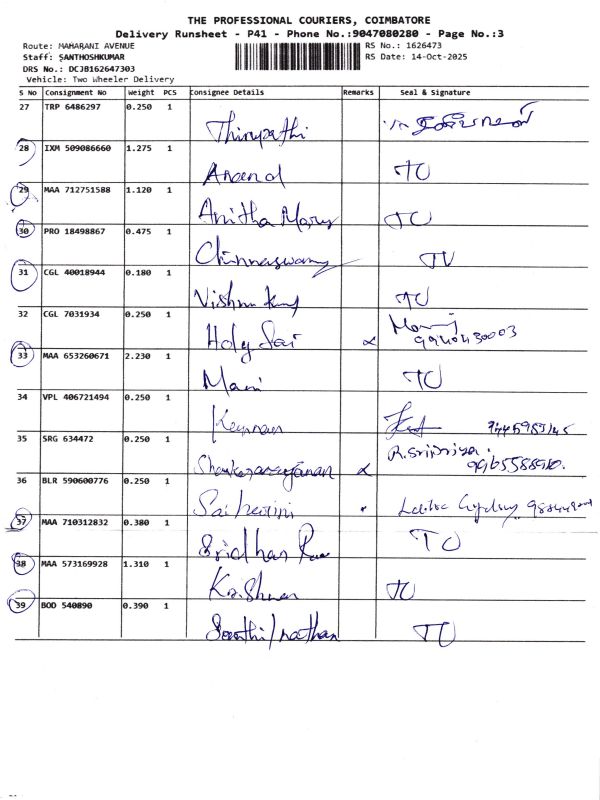 THE PROFESSIONAL COURIERS, COIMBATORE
Delivery Runsheet - P41 - Phone No.:9047080280 - Page No.:3
Route: MAHARANI AVENUE RS No.: 1626473
Staff: SANTHOSHKUMAR RS Date: 14-Oct-2025
DRS No.: DCJB162647303
Vehicle: Two Wheeler Delivery
S No Consignment No Weight PCS Consignee Details Remarks Seal & Signature
27 TRP 6486297 0.250 1
Thirupathi
28 IXM 509086660 1.275 1
Anand TO
29 MAA 712751588 1.120 1
Anitha Mary TO
30 PRO 18498867 0.475 1
Chinnaswamy TO
31 CGL 40018944 0.180 1
Vishnu TO
32 CGL 7031934 0.250 1
Holy Sai 9940430003
33 MAA 653260671 2.230 1
Mani TO
34 VPL 406721494 0.250 1
35 SRG 634472 0.250 1
R.Sripriya.
Shankaranarayanan 9965588910.
36 BLR 590600776 0.250 1
37 MAA 710312832 0.380 1
Sridhar TO
38 MAA 573169928 1.310 1
Krishnan TO
39 BOD 540890 0.390 1
TO